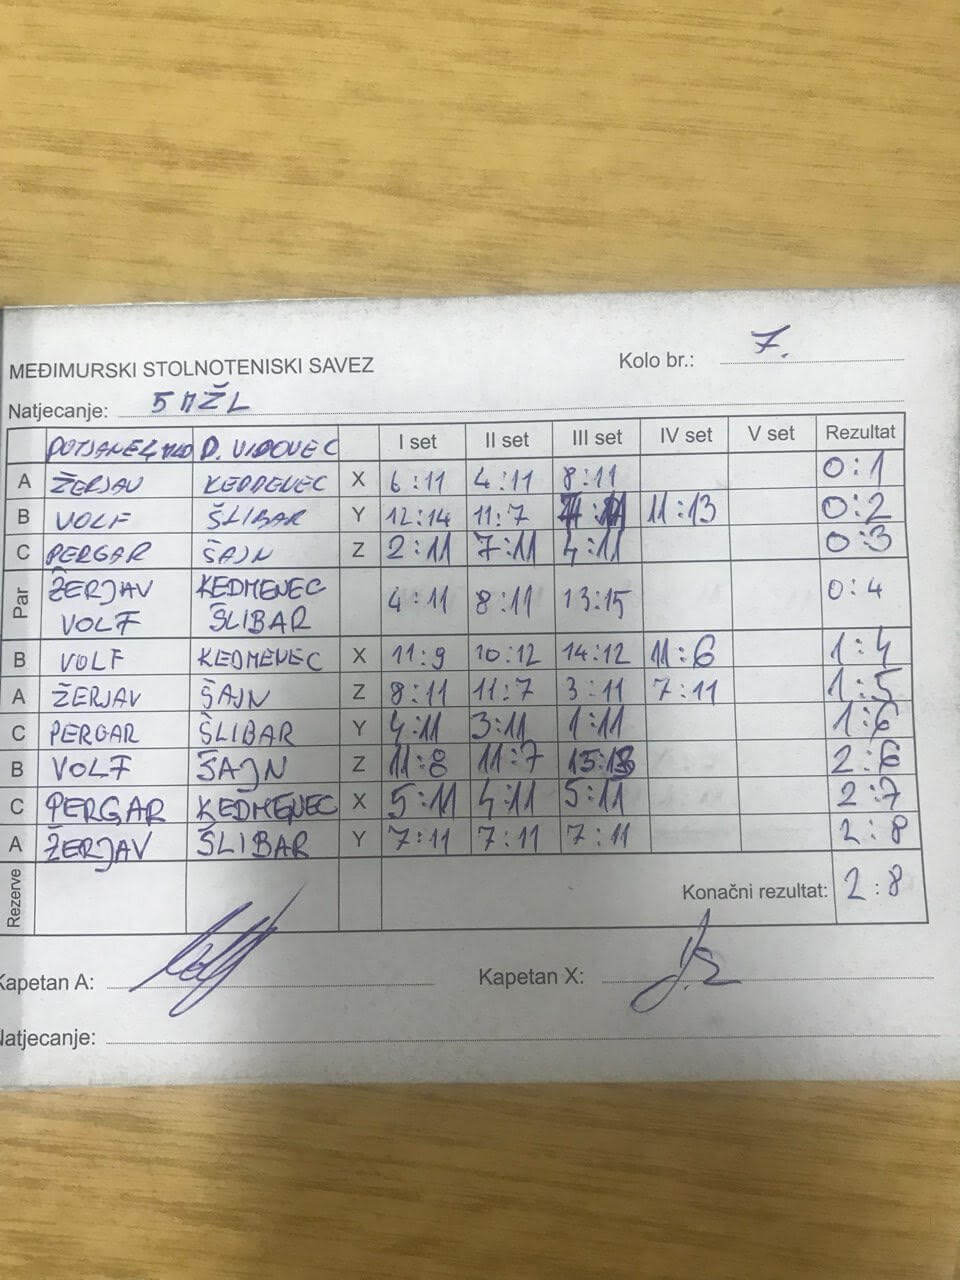 MEĐIMURSKI STOLNOTENISKI SAVEZ
Kolo br.: 7.
Natjecanje: 5 MŽL
D. VIDOVEC I set II set III set IV set V set Rezultat
A ŽERJAV KEDMENEC X 6:11 4:11 8:11 0:1
B VOLF ŠLIBAR Y 12:14 11:7 11:13 0:2
C PERGAR ŠAJN Z 2:11 7:11 4:11 0:3
Par ŽERJAV KEDMENEC 4:11 8:11 13:15 0:4
VOLF ŠLIBAR
B VOLF KEDMENEC X 11:9 10:12 14:12 11:6 1:4
A ŽERJAV ŠAJN Z 8:11 11:7 3:11 7:11 1:5
C PERGAR ŠLIBAR Y 4:11 3:11 1:11 1:6
B VOLF ŠAJN Z 11:8 11:7 15:13 2:6
C PERGAR KEDMENEC X 5:11 4:11 5:11 2:7
A ŽERJAV ŠLIBAR Y 7:11 7:11 7:11 2:8
Rezerve Konačni rezultat: 2:8
Kapetan A: Kapetan X:
Natjecanje: